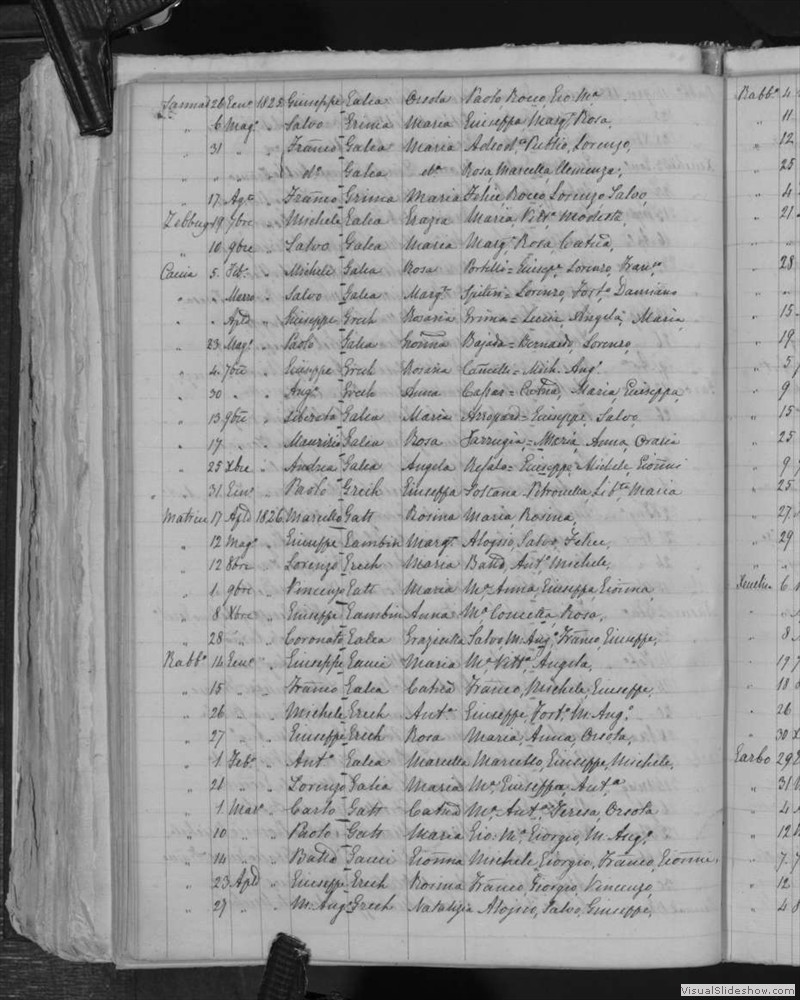 26 Genº 1825 Giuseppe Galea Orsola Paolo, Rocco, Gio Mª
" 6 Magº " Salvo Grima Maria Giuseppa Margª Rosa,
" 31 " " Franco Galea Maria Adeodª Publio, Lorenzo,
" " " " dº Galea dª Rosa Marcella Clemenza,
" 17 Agº " Franco Grima Maria Felice Rocco Lorenzo Salvo,
Zebbug 19 7bre " Michele Galea Grazia Maria, Vitª Modesta,
" 10 9bre " Salvo Galea Maria Margª Rosa, Catna,
5 Febº " Michele Galea Rosa Portelli = Giusepª Lorenzo, Francº
" " Marzo " Salvo Galea Margta Spiteri = Lorenzo, Fortº Damiano
" " Aple " Giuseppe Grech Rosaria Grima = Angela, Maria,
" 23 Magº " Paolo Galea Gionna Bajada = Bernardo, Lorenzo,
" 4 7bre " Giuseppe Grech Rosaria Camilleri = Mich. Angº
" 30 " " Angº Grech Anna Cassar = Catna, Maria, Giuseppa,
" 13 9bre " Liberato Galea Maria = Giuseppe, Salvo,
" 17 " " Maurizio Galea Rosa Farrugia = Maria, Anna, Oralia
" 25 Xbre " Andrea Galea Angela Refalo = Giuseppe, Michele, Gionni
" 31 Genº " Paolo Grech Giuseppa Petronella Libta Maria
17 Aple 1826 Marcello Gatt Rosina Maria, Rosina,
" 12 Magº " Giuseppe Gambin Margta Aloisio, Salvo, Felice,
" 12 8bre " Lorenzo Grech Maria Batta, Antº Michele,
" 1 9bre " Vincenzo Gatt Maria Mª Anna, Giuseppa Gionna,
" 8 Xbre " Giuseppe Gambin Anna Mª Concetta Rosa,
" 28 " " Coronato Galea Graziella Salvo M. Angº, Franco, Giuseppe,
Rabbº 14 Genº " Giuseppe Gauci Maria Mª Vittª, Angela,
" 15 " " Franco Galea Catna Franco, Michele, Giuseppe,
" 26 " " Michele Grech Antª Giuseppe, Fortº M. Angº
" 27 " " Giuseppe Grech Rosa Maria, Anna, Orsola,
" 1 Febº " Antº Galea Marcella Marcello, Giuseppe, Michele,
" 21 " " Lorenzo Galea Maria Mª Giuseppa, Antª
" 1 Marº " Carlo Gatt Catna Mª Antª Teresa, Orsola
" 10 " " Paolo Gatt Maria Gio: Mª Giorgio, M. Angº
" 14 " " Batta Gauci Gionna Michele, Giorgio, Franco, Gionni,
" 23 Aple " Giuseppe Grech Rosina Franco, Giorgio, Vincenzo,
" 27 " " M. Angº Grech Natalizia Aloisio, Salvo, Giuseppe,
Rabbº 4
" 11
" 12
" 25
" 4
" 21
" 28
" 15
" 19
" 5
" 9
" 15
" 25
" 9
" 25
" 27
" 29
6
" 8
" 17
" 18
" 26
" 30
Garbo 29
" 31
" 4
" 12
" 7
" 12
" 4
VisualSlideshow.com